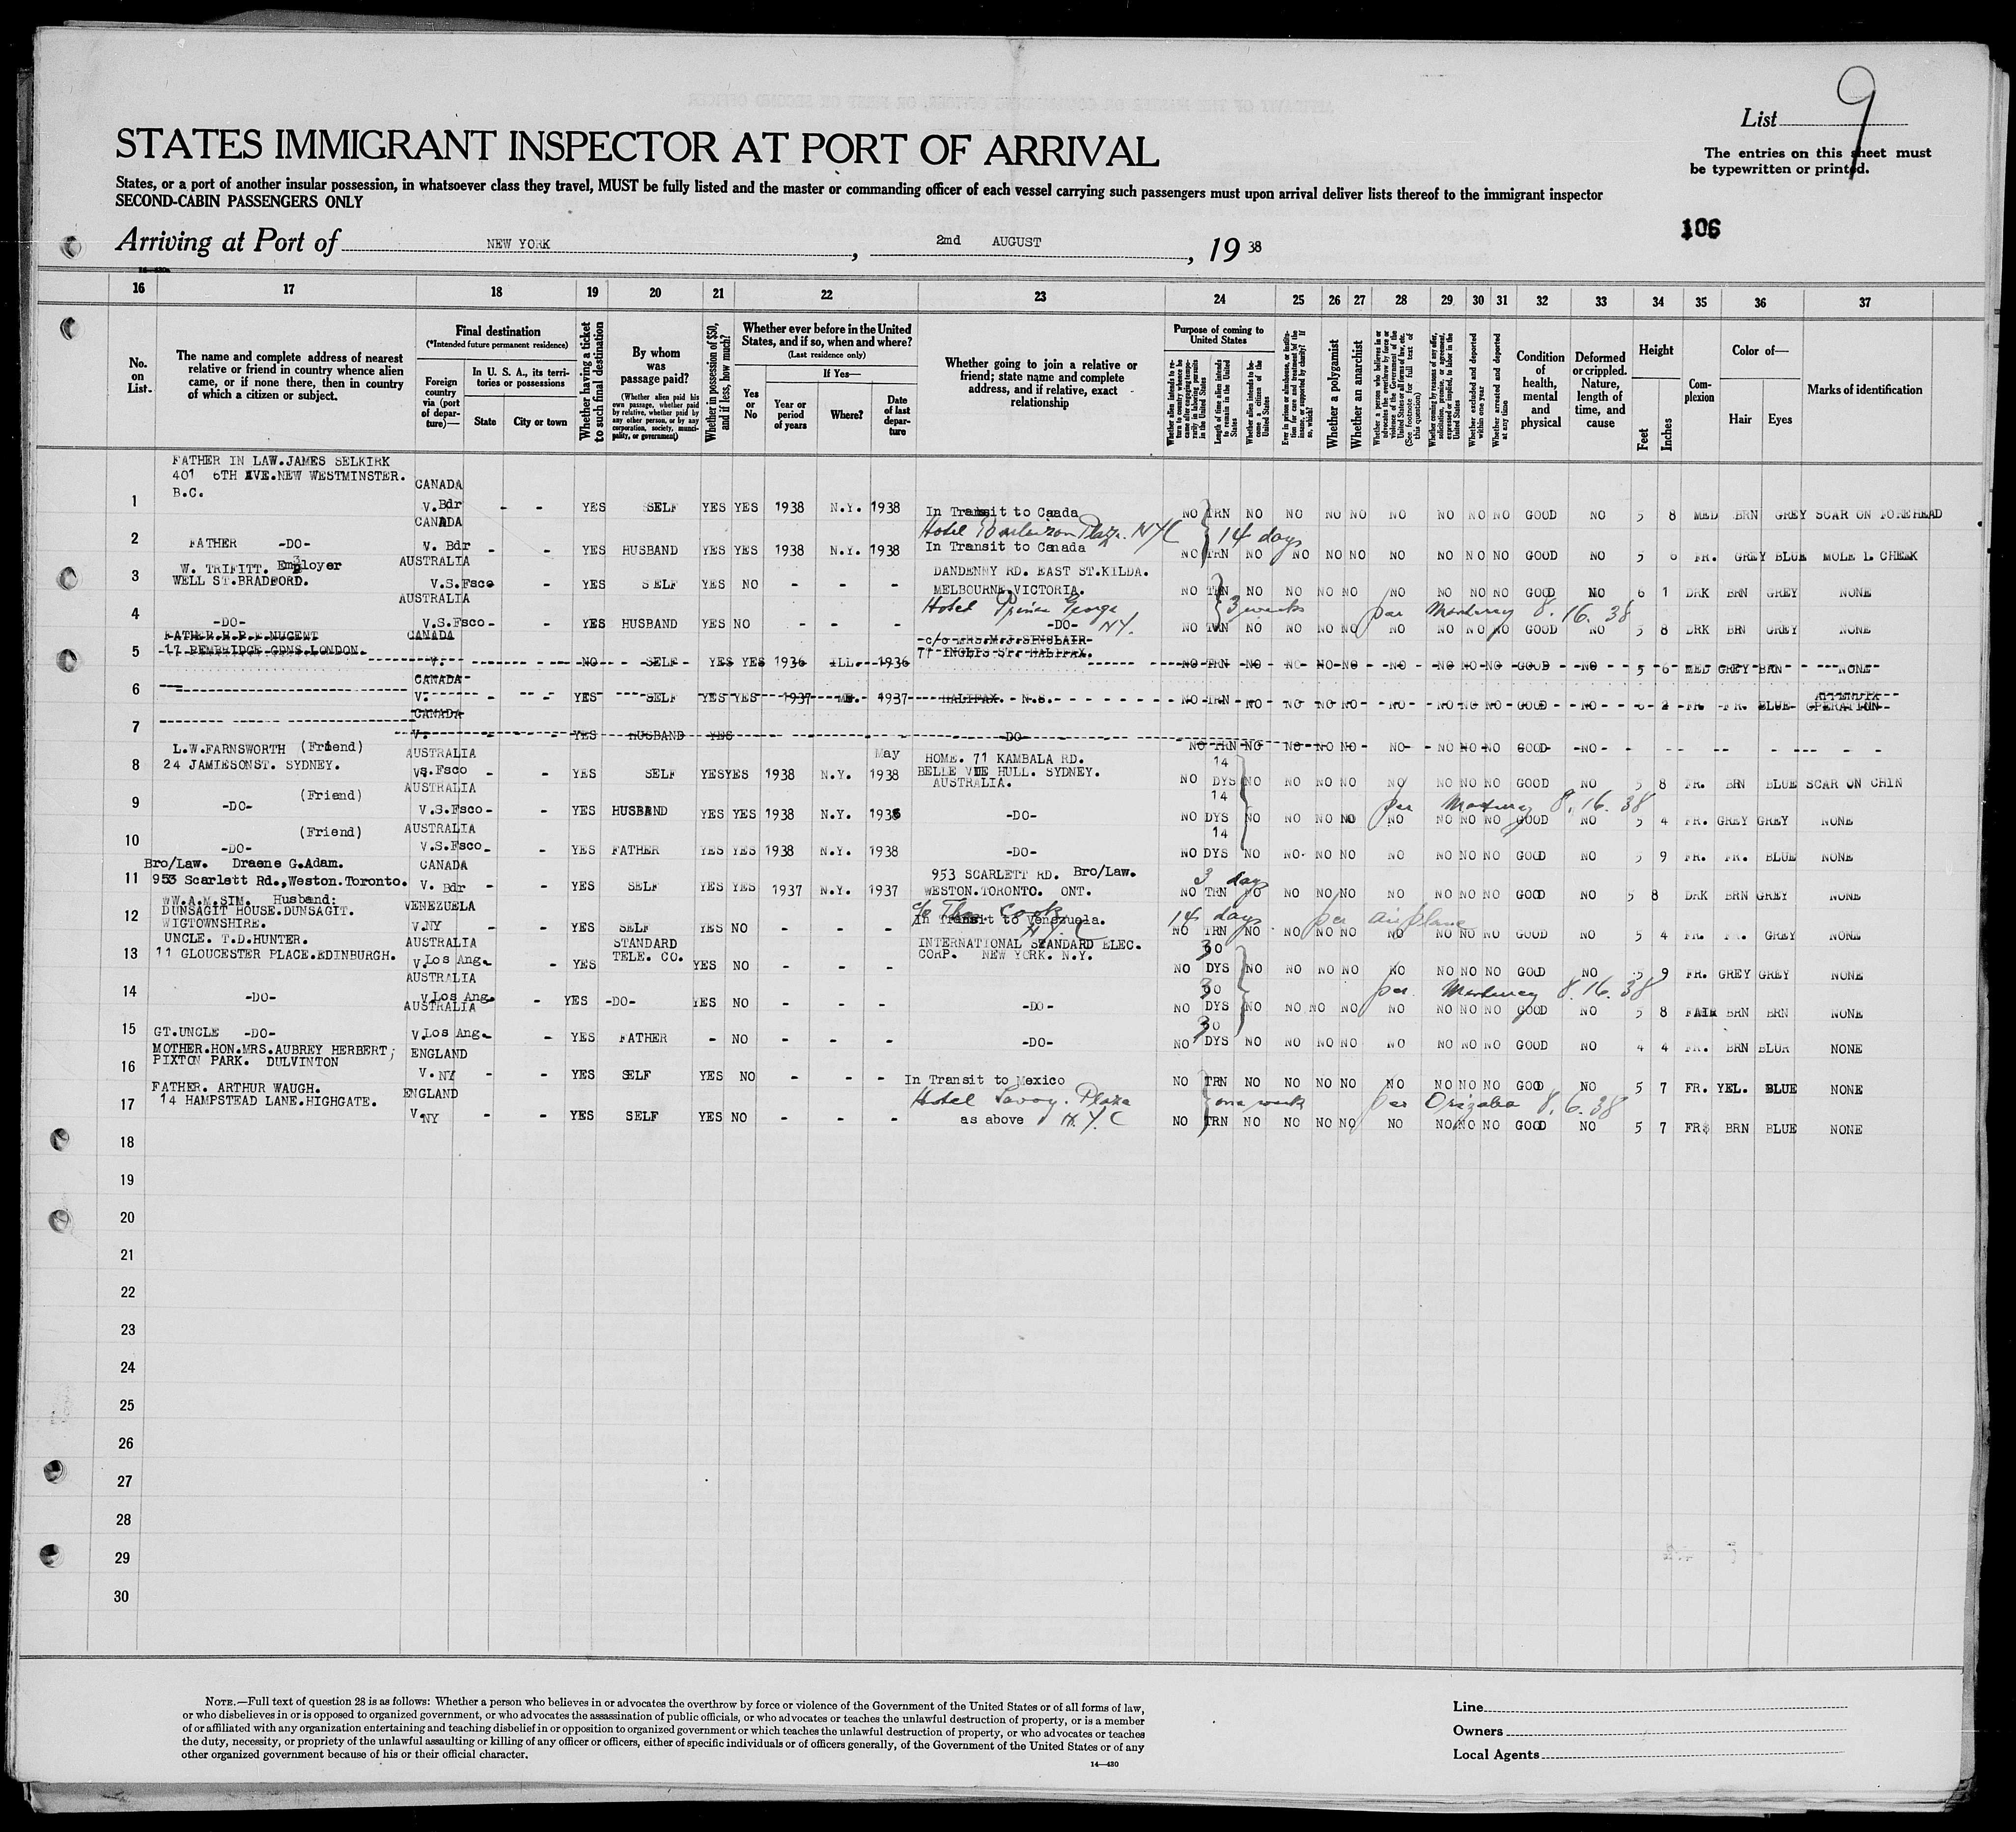 List 9
The entries on this sheet must
be typewritten or printed.
STATES IMMIGRANT INSPECTOR AT PORT OF ARRIVAL
States, or a port of another insular possession, in whatsoever class they travel, MUST be fully listed and the master or commanding officer of each vessel carrying such passengers must upon arrival deliver lists thereof to the immigrant inspector
SECOND-CABIN PASSENGERS ONLY
106
Arriving at Port of NEW YORK, 2md AUGUST, 1938
16 17 18 19 20 21 22 23 24 25 26 27 28 29 30 31 32 33 34 35 36 37
No. on List.
The name and complete address of nearest relative or friend in country whence alien came, or if none there, then in country of which a citizen or subject.
Final destination
(*Intended future permanent residence)
Foreign country via (port of departure)—
In U. S. A., its territories or possessions
State City or town
Whether having a ticket to such final destination
By whom was passage paid?
(Whether alien paid his own passage, whether paid by relative, whether paid by any other person, or by any corporation, society, municipality, or government)
Whether in possession of $50, and if less, how much?
Whether ever before in the United States, and if so, when and where?
(Last residence only)
Yes or No
If Yes—
Year or period of years
Where?
Date of last departure
Whether going to join a relative or friend; state name and complete address, and if relative, exact relationship
Purpose of coming to United States
Length of time alien intends to remain in the United States
Whether alien intends to become a citizen of the United States
Whether a polygamist
Whether an anarchist
(See footnote for full text of this question)
Whether excluded and deported within one year
Whether arrested and deported at any time
Condition of health, mental and physical
Deformed or crippled. Nature, length of time, and cause
Height
Feet Inches
Complexion
Color of—
Hair Eyes
Marks of identification
FATHER IN LAW.JAMES SELKIRK
401 6TH AVE.NEW WESTMINSTER.
B.C.
1 CANADA V.Bdr - - YES SELF YES YES 1938 N.Y. 1938 In Transit to Caada NO TRN NO NO NO NO NO NO NO NO GOOD NO 5 8 MED BRN GREY SCAR ON FOREHEAD
Hotel Plaza. NYC 14 days
2 FATHER -DO- CANADA V. Bdr - - YES HUSBAND YES YES 1938 N.Y. 1938 In Transit to Canada NO TRN NO NO NO NO NO NO NO NO GOOD NO 5 6 FR. GREY BLUE MOLE L. CHEEK
3 W. TRIFITT. Employer
WELL ST.BRADFORD. AUSTRALIA V.S.Fsco - YES SELF YES NO - - - DANDENNY RD. EAST ST.KILDA.
MELBOURNE.VICTORIA. NO TRN NO NO NO NO NO NO NO NO GOOD NO 6 1 DRK BRN GREY NONE
Hotel Prince George NY. 3 weeks per Monterey 8.16.38
4 -DO- AUSTRALIA V.S.Fsco - YES HUSBAND YES NO - - - -DO- NO TRN NO NO NO NO NO NO NO NO GOOD NO 5 8 DRK BRN GREY NONE
5 FATHER.H.P.F.NUGENT
17 PEMBRIDGE GDNS.LONDON. CANADA V. NO SELF YES YES 1936 ILL. 1936 c/o MRS.M.J.SINCLAIR
77 INGLIS ST. HALIFAX. NO TRN NO NO NO NO NO NO NO NO GOOD NO 5 6 MED GREY BRN NONE
6 CANADA V. - - YES SELF YES YES 1937 1937 HALIFAX. N.S. NO TRN NO NO NO NO NO NO NO NO GOOD NO FR. FR. BLUE APPENDIX OPERATION
7 CANADA V. - - YES HUSBAND YES -DO- NO TRN NO NO NO NO NO NO NO NO GOOD NO - - - -
8 L.W.FARNSWORTH (Friend)
24 JAMIESONST. SYDNEY. AUSTRALIA VS.Fsco - - YES SELF YES YES 1938 N.Y. May 1938 HOME. 71 KAMBALA RD.
BELLE VUE HULL. SYDNEY.
AUSTRALIA. NO 14 DYS NO NO NO NO NO NO NO NO GOOD NO 5 8 FR. BRN BLUE SCAR ON CHIN
9 (Friend) -DO- AUSTRALIA V.S.Fsco - - YES HUSBAND YES YES 1938 N.Y. 1938 -DO- NO 14 DYS NO NO NO NO NO NO NO NO GOOD NO 5 4 FR. GREY GREY NONE
per Monterey 8.16.38
10 (Friend) -DO- AUSTRALIA V.S.Fsco - - YES FATHER YES YES 1938 N.Y. 1938 -DO- NO 14 DYS NO NO NO NO NO NO NO NO GOOD NO 5 9 FR. FR. BLUE NONE
11 Bro/Law. Draene G.Adam.
953 Scarlett Rd.,Weston.Toronto. CANADA V. Bdr - - YES SELF YES YES 1937 N.Y. 1937 953 SCARLETT RD. Bro/Law.
WESTON.TORONTO. ONT. 3 days NO TRN NO NO NO NO NO NO NO NO GOOD NO 5 8 DRK BRN GREY NONE
12 WW.A.M.SIM. Husband:
DUNSAGIT HOUSE.DUNSAGIT.
WIGTOWNSHIRE. VENEZUELA V.NY - - YES SELF YES NO - - - c/o Thos Cook NYC
In Transit to Venezuela. 14 days per airplane NO TRN NO NO NO NO NO NO NO NO GOOD NO 5 4 FR. FR. GREY NONE
13 UNCLE. T.D.HUNTER.
11 GLOUCESTER PLACE.EDINBURGH. AUSTRALIA V.Los Ang. - YES STANDARD TELE. CO. YES NO - - - INTERNATIONAL STANDARD ELEC.
CORP. NEW YORK. N.Y. NO 30 DYS NO NO NO NO NO NO NO NO GOOD NO 5 9 FR. GREY GREY NONE
per Monterey 8.16.38
14 -DO- AUSTRALIA V.Los Ang. - YES -DO- YES NO - - - -DO- NO 30 DYS NO NO NO NO NO NO NO NO GOOD NO 5 8 FAIR BRN BRN NONE
15 GT.UNCLE -DO- AUSTRALIA V.Los Ang. - YES FATHER - NO - - - -DO- NO 30 DYS NO NO NO NO NO NO NO NO GOOD NO 4 4 FR. BRN BLUE NONE
16 MOTHER.HON.MRS.AUBREY HERBERT;
PIXTON PARK. DULVINTON ENGLAND V.NY - - YES SELF YES NO - - - In Transit to Mexico NO TRN NO NO NO NO NO NO NO NO GOOD NO 5 7 FR. YEL. BLUE NONE
Hotel Savoy. Plaza N.Y.C one week per Orizaba 8.6.38
17 FATHER. ARTHUR WAUGH.
14 HAMPSTEAD LANE.HIGHGATE. ENGLAND V.NY - - YES SELF YES NO - - - as above NO TRN NO NO NO NO NO NO NO NO GOOD NO 5 7 FR. BRN BLUE NONE
18
19
20
21
22
23
24
25
26
27
28
29
30
NOTE.—Full text of question 28 is as follows: Whether a person who believes in or advocates the overthrow by force or violence of the Government of the United States or of all forms of law,
or who disbelieves in or is opposed to organized government, or who advocates the assassination of public officials, or who advocates or teaches the unlawful destruction of property, or is a member
of or affiliated with any organization entertaining and teaching disbelief in or opposition to organized government or which teaches the unlawful destruction of property, or who advocates or teaches
the duty, necessity, or propriety of the unlawful assaulting or killing of any officer or officers, either of specific individuals or of officers generally, of the Government of the United States or of any
other organized government because of his or their official character.
14—430
Line
Owners
Local Agents